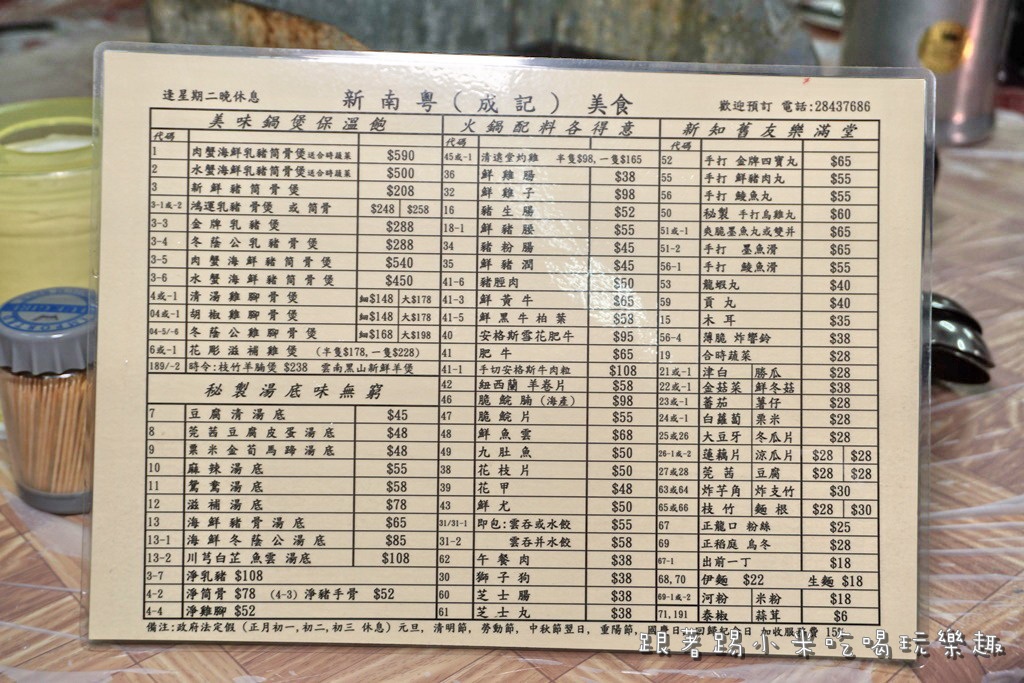 逢星期二晚休息 新南粵(成記) 美食 歡迎預訂 電話:28437686
美味鍋煲保溫飽
代碼
1 肉蟹海鮮乳豬筒骨煲送合時蔬菜 $590
2 水蟹海鮮乳豬筒骨煲送合時蔬菜 $500
3 新鮮豬筒骨煲 $208
3-1或-2 鴻運乳豬骨煲 或 筒骨 $248 $258
3-3 金牌乳豬煲 $288
3-4 冬蔭公乳豬骨煲 $288
3-5 肉蟹海鮮豬筒骨煲 $540
3-6 水蟹海鮮豬筒骨煲 $450
4或-1 清湯雞腳骨煲 細$148 大$178
04或-1 胡椒雞腳骨煲 細$148 大$178
04-5/-6 冬蔭公雞腳骨煲 細$168 大$198
6或-1 花彫滋補雞煲 (半隻$178,一隻$228)
189/-2 時令:枝竹羊腩煲 $238 雲南黑山新鮮羊煲
秘製湯底味無窮
7 豆腐清湯底 $45
8 莞茜豆腐皮蛋湯底 $48
9 粟米金荀馬蹄湯底 $48
10 麻辣湯底 $55
11 鴛鴦湯底 $58
12 滋補湯底 $78
13 海鮮豬骨湯底 $65
13-1 海鮮冬蔭公湯底 $85
13-2 川芎白芷魚雲湯底 $108
3-7 淨乳豬 $108
4-2 淨筒骨 $78 (4-3) 淨豬手骨 $52
4-4 淨雞腳 $52
火鍋配料各得意
代碼
45或-1 清遠堂灼雞 半隻$98,一隻$165
36 鮮雞腸 $38
32 鮮雞子 $98
16 豬生腸 $52
18-1 鮮豬腰 $55
34 豬粉腸 $45
35 鮮豬潤 $45
41-6 豬脛肉 $50
41-3 鮮黃牛 $65
41-5 鮮黑牛柏葉 $53
40 安格斯雪花肥牛 $95
41 肥牛 $65
41-1 手切安格斯牛肉粒 $108
42 紐西蘭 羊卷片 $58
46 脆鯇腩(海產) $98
47 脆鯇片 $55
48 鮮魚雲 $68
49 九肚魚 $50
38 花枝片 $50
39 花甲 $48
43 鮮尤 $50
31/31-1 即包:雲吞或水餃 $55
31-2 雲吞并水餃 $58
62 午餐肉 $38
30 獅子狗 $38
60 芝士腸 $38
61 芝士丸 $38
新知舊友樂滿堂
代碼
52 手打 金牌四寶丸 $65
55 手打 鮮豬肉丸 $55
56 手打 鯪魚丸 $55
50 秘製 手打烏雞丸 $60
51或-1 爽脆墨魚丸或雙丼 $65
51-2 手打 墨魚滑 $65
56-1 手打 鯪魚滑 $55
53 龍蝦丸 $40
59 貢丸 $40
15 木耳 $35
56-4 薄脆 炸響鈴 $38
19 合時蔬菜 $28
21或-1 津白 勝瓜 $28
22或-1 金菇菜 鮮冬菇 $38
23或-1 蕃茄 薯仔 $28
24或-1 白蘿蔔 粟米 $28
25或26 大豆牙 冬瓜片 $28
26-1或-2 蓮藕片 涼瓜片 $28 $28
27或28 莞茜 豆腐 $28 $28
63或64 炸芋角 炸支竹 $30
65或66 枝竹 麵根 $28 $30
67 正龍口 粉絲 $25
69 正稻庭 烏冬 $28
67-1 出前一丁 $18
68,70 伊麵 $22 生麵 $18
69-1或-2 河粉 米粉 $18
71,191 泰椒 蒜茸 $6
備注:政府法定假 (正月初一,初二,初三 休息) 元旦, 清明節, 勞動節, 中秋節翌日, 重陽節, 國慶日, 回歸紀念日 加收服務費 15%
跟著踢小米吃喝玩樂趣